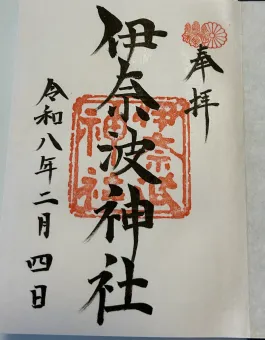 奉拝
伊奈波神社
令和八年二月四日
伊奈波
神社